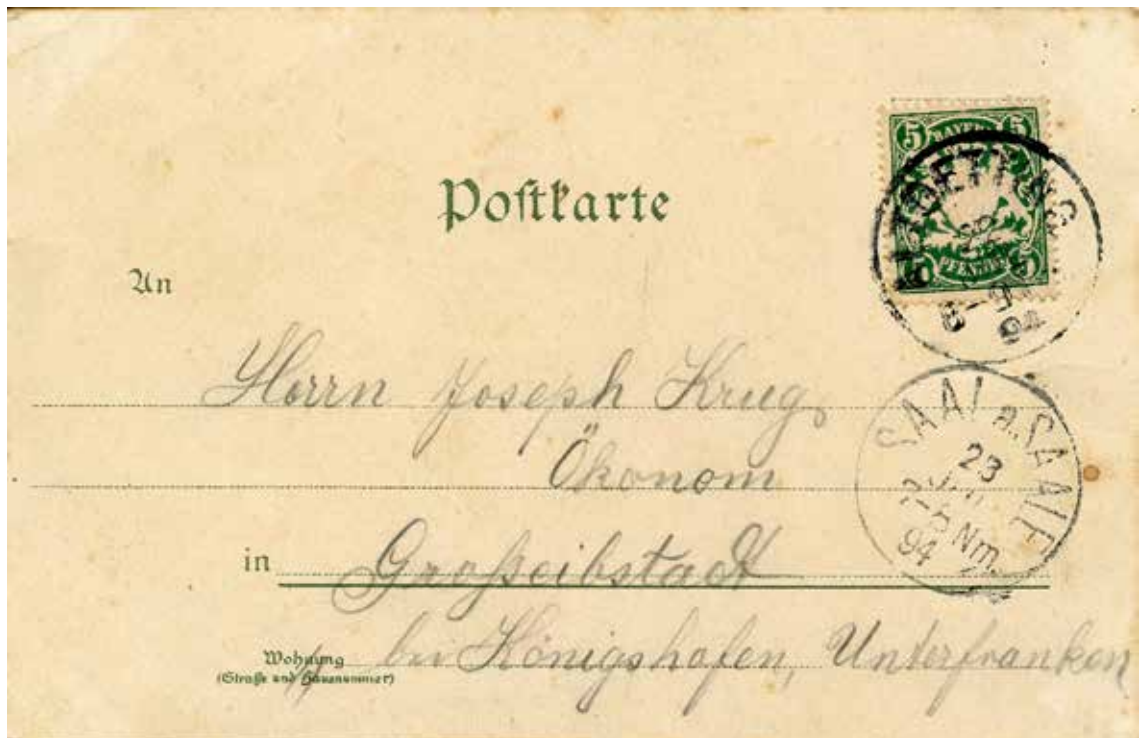 Postkarte
5 BAYERN 5
5 PFENNIG 5
ALTOETTING
8-9
94
An
Herrn Joseph Krug,
SAAL a. SAALE
23
94
Nm.
Ökonom
in Großeibstadt
Wohnung
(Straße und Hausnummer)
bei Königshofen, Unterfranken